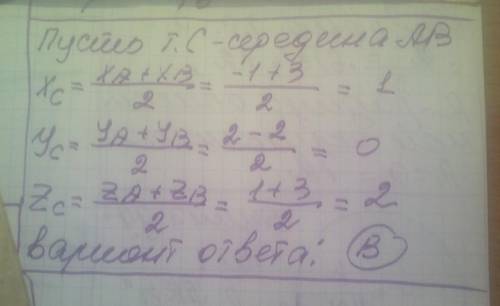 Пусть т. С - середина АВ
Xc = XA + XB / 2 = -1 + 3 / 2 = 1
Yc = YA + YB / 2 = 2 - 2 / 2 = 0
Zc = ZA + ZB / 2 = 1 + 3 / 2 = 2
вариант ответа: В